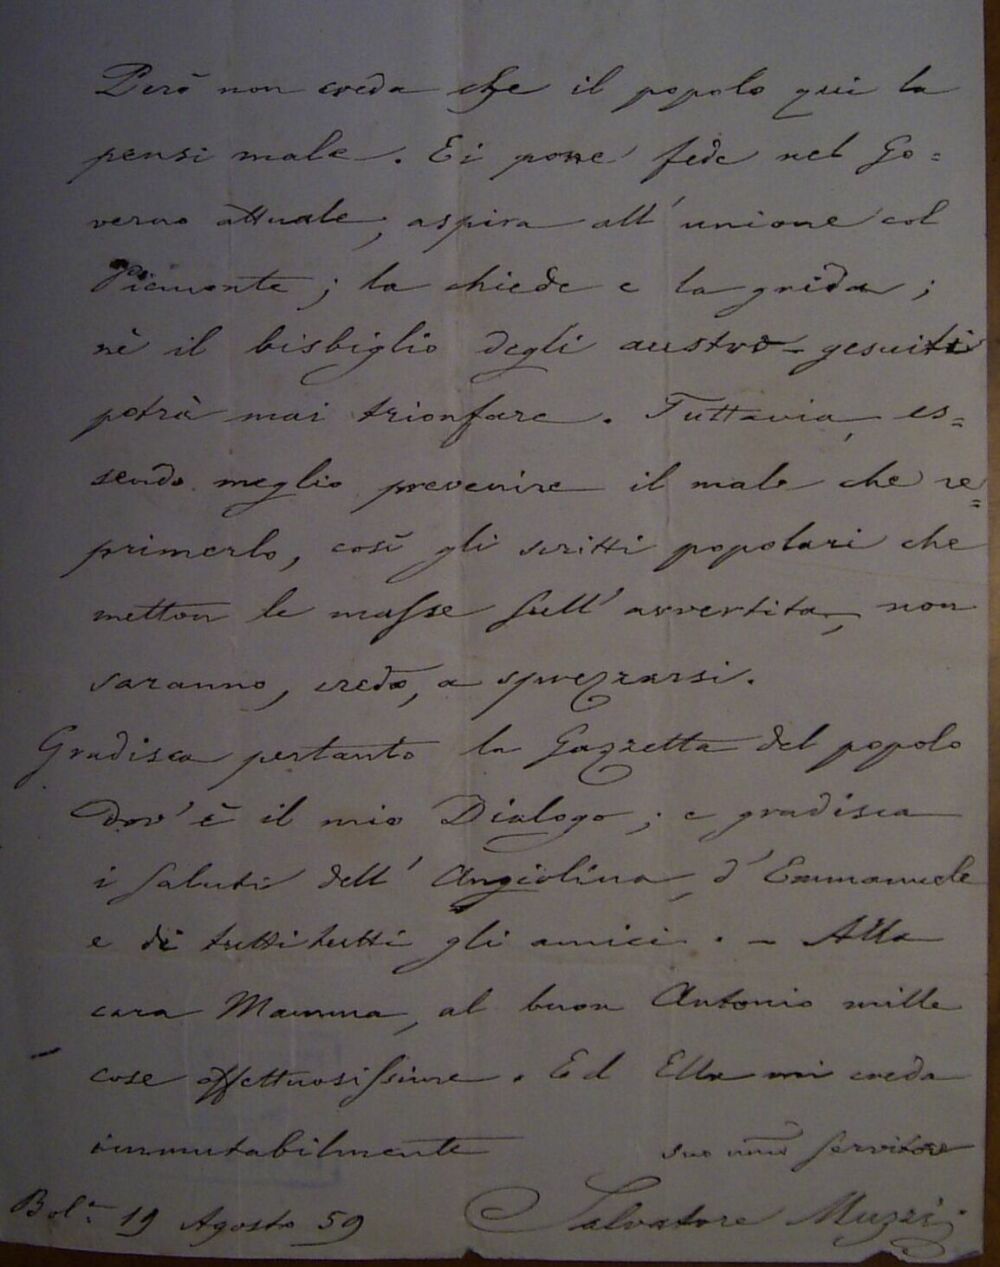 Però non creda che il popolo qui la
pensi male. Ei pone fede nel Go=
verno attuale, aspira all'unione col
Piemonte; la chiede e la grida;
nè il bisbiglio degli austro-gesuiti
potrà mai trionfare. Tuttavia, es=
sendo meglio prevenire il male che re=
primerlo, così gli scritti popolari che
metton le masse sull'avvertita, non
saranno, credo, a sprezzarsi.
Gradisca pertanto la Gazzetta del popolo
dov'è il mio Dialogo; e gradisca
i saluti dell'Angiolina, d'Emmanuele
e di tutti tutti gli amici. - Alla
cara Mamma, al buon Antonio mille
cose affettuosissime. Ed Ella mi creda
immutabilmente suo umo servitore
Bol.a 19 Agosto 59 Salvatore Muzzi.